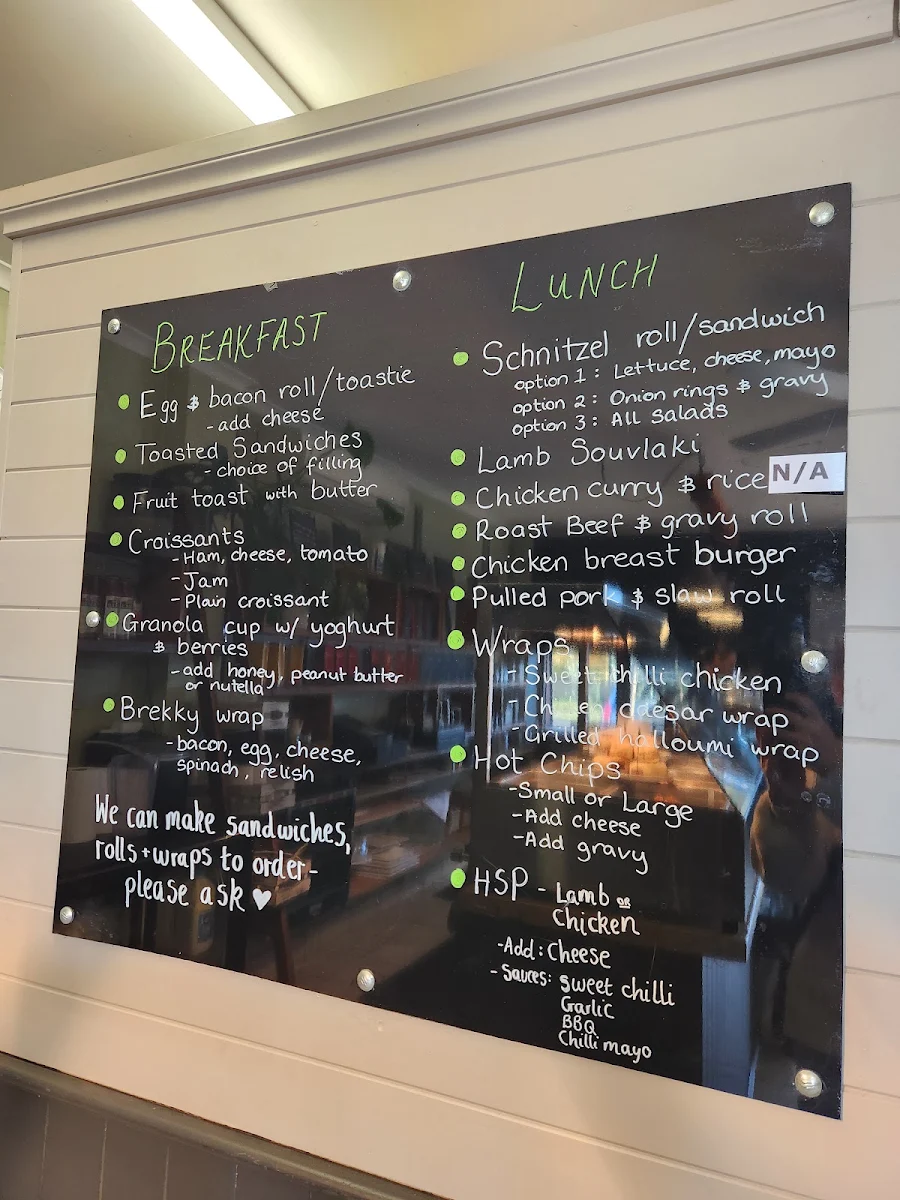 BREAKFAST
Egg & bacon roll/toastie
- add cheese
Toasted Sandwiches
- choice of filling
Fruit toast with butter
Croissants
- Ham, cheese, tomato
- Jam
- Plain croissant
Granola cup w/ yoghurt
& berries
- add honey, peanut butter
or nutella
Brekky wrap
- bacon, egg, cheese,
spinach, relish
We can make sandwiches,
rolls + wraps to order -
please ask ♥
LUNCH
Schnitzel roll/sandwich
option 1: Lettuce, cheese, mayo
option 2: Onion rings & gravy
option 3: All salads
Lamb Souvlaki
Chicken curry & rice N/A
Roast Beef & gravy roll
Chicken breast burger
Pulled pork & slaw roll
Wraps
- Sweet chilli chicken
- Chicken caesar wrap
- Grilled halloumi wrap
Hot Chips
- Small or Large
- Add cheese
- Add gravy
HSP - Lamb OR
Chicken
- Add: Cheese
- Sauces: sweet chilli
Garlic
BBQ
Chilli mayo